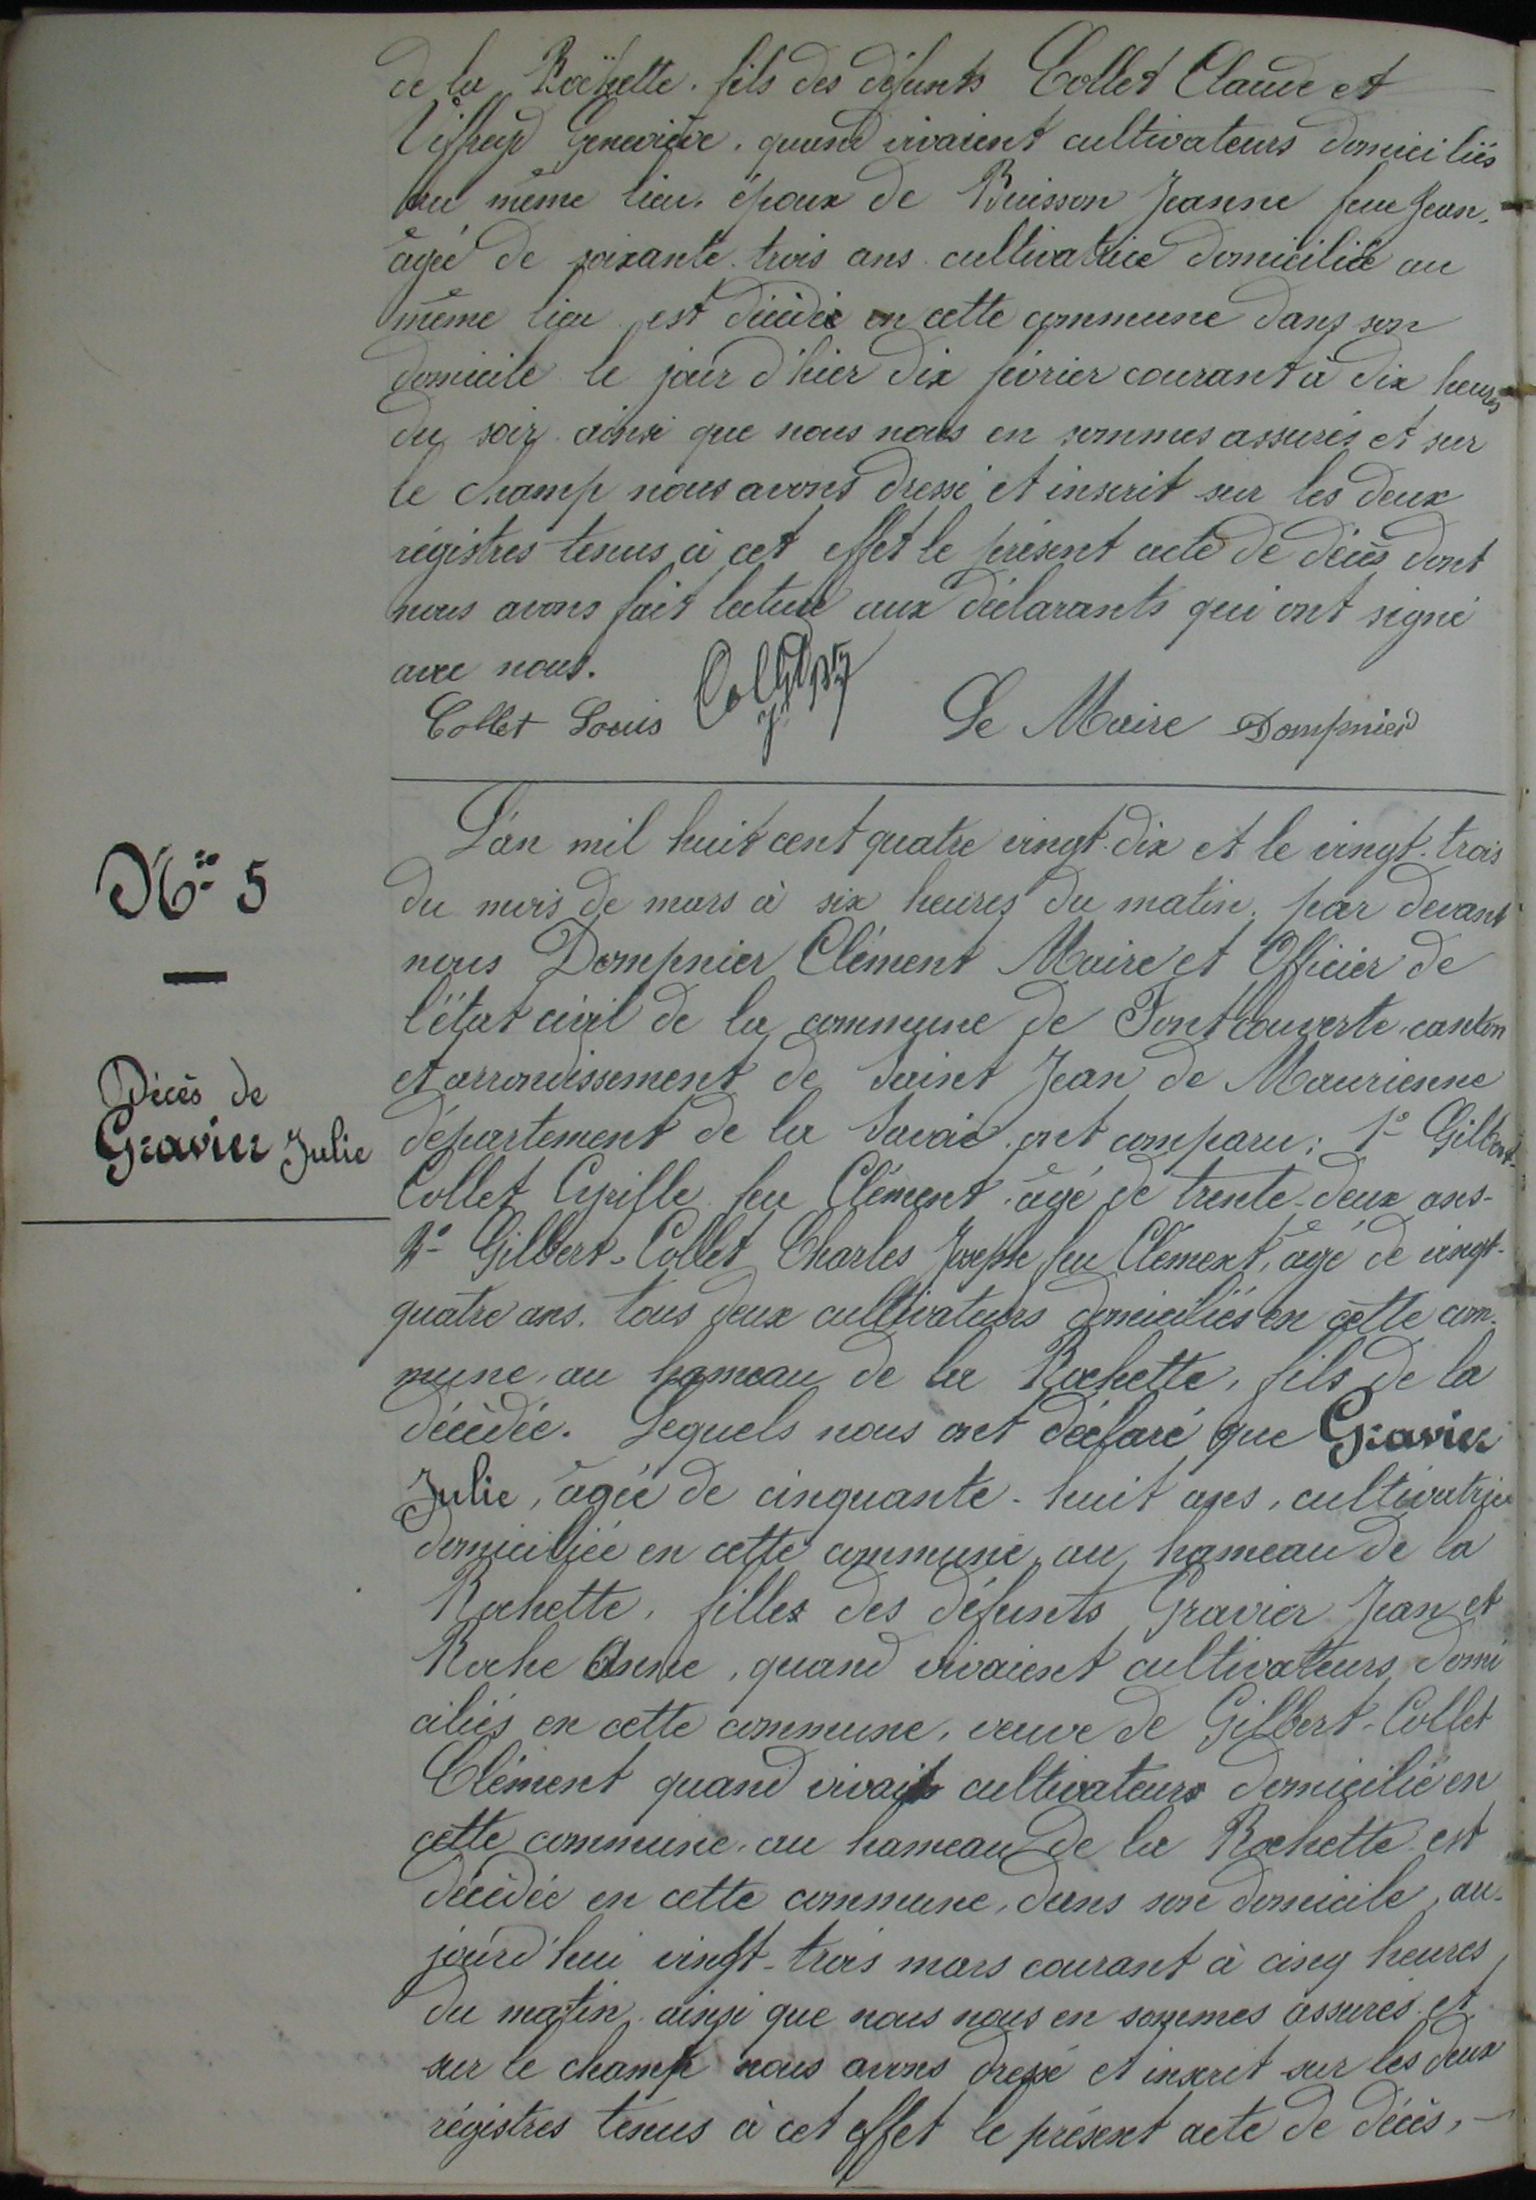 de la Rochette. fils des défunts Collet Claude et
Geneviève. quand vivaient cultivateurs domiciliés
au même lieu. époux de Buisson Jeanne feu Jean.
âgée de soixante trois ans cultivatrice domiciliée au
même lieu est décédé en cette commune dans son
domicile le jour d'hier dix février courant à dix heures
du soir ainsi que nous nous en sommes assurés et sur
le champ nous avons dressé et inscrit sur les deux
régistres tenus à cet effet le présent acte de décès dont
nous avons fait lecture aux déclarants qui ont signé
avec nous.
Collet Louis Le Maire Dompnier
L'an mil huit cent quatre vingt-dix et le vingt-trois
du mois de mars à six heures du matin. par devant
nous Dompnier Clément Maire et Officier de
l'état civil de la commune de Fontcouverte canton
et arrondissement de Saint Jean de Maurienne
département de la Savoie. ont comparu: 1º Gilbert-
Collet Cyrille feu Clément. âgé de trente-deux ans-
2º- Gilbert-Collet Charles Joseph feu Clément, âgé de vingt-
quatre ans. tous deux cultivateurs domiciliés en cette com-
mune, au hameau de la Rochette, fils de la
décédée. Lequels nous ont déclaré que Gravier
Julie, âgée de cinquante-huit ans, cultivatrice
domiciliée en cette commune, au hameau de la
Rochette, filles des défunts Gravier Jean et
Roche Anne, quand vivaient cultivateurs domi
ciliés en cette commune, veuve de Gilbert-Collet
Clément quand vivait cultivateurs domicilié en
cette commune. au hameau de la Rochette est
décédée en cette commune, dans son domicile, au-
jourd'hui vingt-trois mars courant à cinq heures
du matin ainsi que nous nous en sommes assurés et
sur le champ nous avons dressé et inscrit sur les deux
régistres tenus à cet effet le présent acte de décès,-
Nº 5
Décès de
Gravier Julie